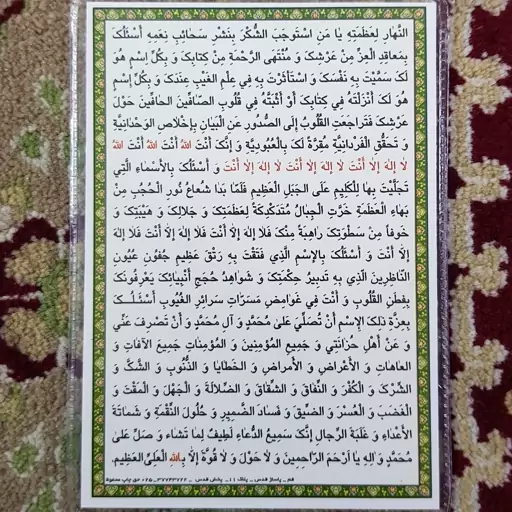 النَّهارِ لِعَظَمَتِهِ يا مَنِ اسْتَوجَبَ الشُّكْرَ بِنَشْرِ سَحائِبِ نِعَمِهِ أَسْئَلُكَ
بِمَعاقِدِ الْعِزِّ مِنْ عَرْشِكَ وَ مُنْتَهَی الرَّحْمَةِ مِنْ كِتابِكَ وَ بِكُلِّ اِسْمٍ هُوَ
لَكَ سَمَّيْتَ بِهِ نَفْسَكَ وَ اسْتَأْثَرْتَ بِهِ فِي عِلْمِ الْغَيْبِ عِنْدَكَ وَ بِكُلِّ اِسْمٍ
هُوَ لَكَ أَنْزَلْتَهُ فِي كِتابِكَ أَوْ أَثْبَتَّهُ فِي قُلُوبِ الصَّافِّينَ الحافِّينَ حَوْلَ
عَرْشِكَ فَتَراجَعَتِ الْقُلُوبُ إِلَی الصُّدُورِ عَنِ الْبَيَانِ بِإِخْلاصِ الْوَحْدانِيَّةِ
وَ تَحَقُّقِ الْفَرْدانِيَّةِ مُقِرَّةً لَكَ بِالْعُبُودِيَّةِ وَ إِنَّكَ أَنْتَ اللهُ أَنْتَ اللهُ أَنْتَ اللهُ
لا إِلهَ إِلاَّ أَنْتَ لا إِلهَ إِلاَّ أَنْتَ لا إِلهَ إِلاَّ أَنْتَ وَ أَسْئَلُكَ بِالأَسْماءِ الَّتِي
تَجَلَّيْتَ بِها لِلْكَلِيمِ عَلَی الْجَبَلِ الْعَظِيمِ فَلَمّا بَدا شُعاعُ نُورِ الْحُجُبِ مِنْ
بَهاءِ الْعَظَمَةِ خَرَّتِ الْجِبالُ مُتَدَكْدِكَةً لِعَظَمَتِكَ وَ جَلالِكَ وَ هَيْبَتِكَ وَ
خَوفاً مِنْ سَطْوَتِكَ راهِبَةً مِنْكَ فَلا إِلهَ إِلاَّ أَنْتَ فَلا إِلهَ إِلاَّ أَنْتَ فَلا إِلهَ
إِلاَّ أَنْتَ وَ أَسْئَلُكَ بِالإِسْمِ الَّذِي فَتَقْتَ بِهِ رَتْقَ عَظِيمِ جُفُونِ عُيُونِ
النّاظِرِينَ الَّذِي بِهِ تَدْبِيرُ حِكْمَتِكَ وَ شَواهِدُ حُجَجِ أَنْبِيائِكَ يَعْرِفُونَكَ
بِفِطَنِ الْقُلُوبِ وَ أَنْتَ فِي غَوامِضِ مَسَرّاتِ سَرائِرِ الْغُيُوبِ أَسْئَلُكَ
بِعِزَّةِ ذلِكَ الإِسْمِ أَنْ تُصَلِّيَ عَلی مُحَمَّدٍ وَ آلِ مُحَمَّدٍ وَ أَنْ تَصْرِفَ عَنِّي
وَ عَنْ أَهْلِ حُزانَتِي وَ جَمِيعِ الْمُؤْمِنِينَ وَ الْمُؤْمِناتِ جَمِيعَ الآفاتِ وَ
العاهاتِ وَ الأَعْراضِ وَ الأَمراضِ وَ الْخَطايا وَ الذُّنُوبِ وَ الشَّكَّ وَ
الشِّرْكَ وَ الْكُفْرَ وَ النِّفاقَ وَ الشِّقاقَ وَ الضَّلالَةَ وَ الْجَهْلَ وَ الْمَقْتَ وَ
الْغَضَبَ وَ الْعُسْرَ وَ الضِّيقَ وَ فَسادَ الضَّمِيرِ وَ حُلُولَ النِّقْمَةِ وَ شَماتَةَ
الأَعْداءِ وَ غَلَبَةَ الرِّجالِ إِنَّكَ سَمِيعُ الدُّعاءِ لَطِيفٌ لِما تَشاءُ وَ صَلِّ عَلی
مُحَمَّدٍ وَ الِهِ يا اَرْحَمَ الرّاحِمِينَ وَ لا حَوْلَ وَ لا قُوَّةَ إِلاَّ بِاللهِ الْعَلِيِّ الْعَظِيمِ.
قم _ پاساژ قدس _ پلاک ۱۱_ پخش قدس _ ۳۷۷۴۳۷۲۲_۰۲۵ حق چاپ محفوظ